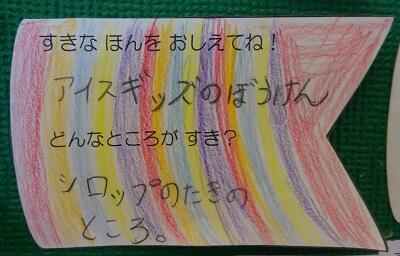 すきな ほんを おしえてね！
アイスギッズのぼうけん
どんなところが すき？
シロップのたきの
ところ。